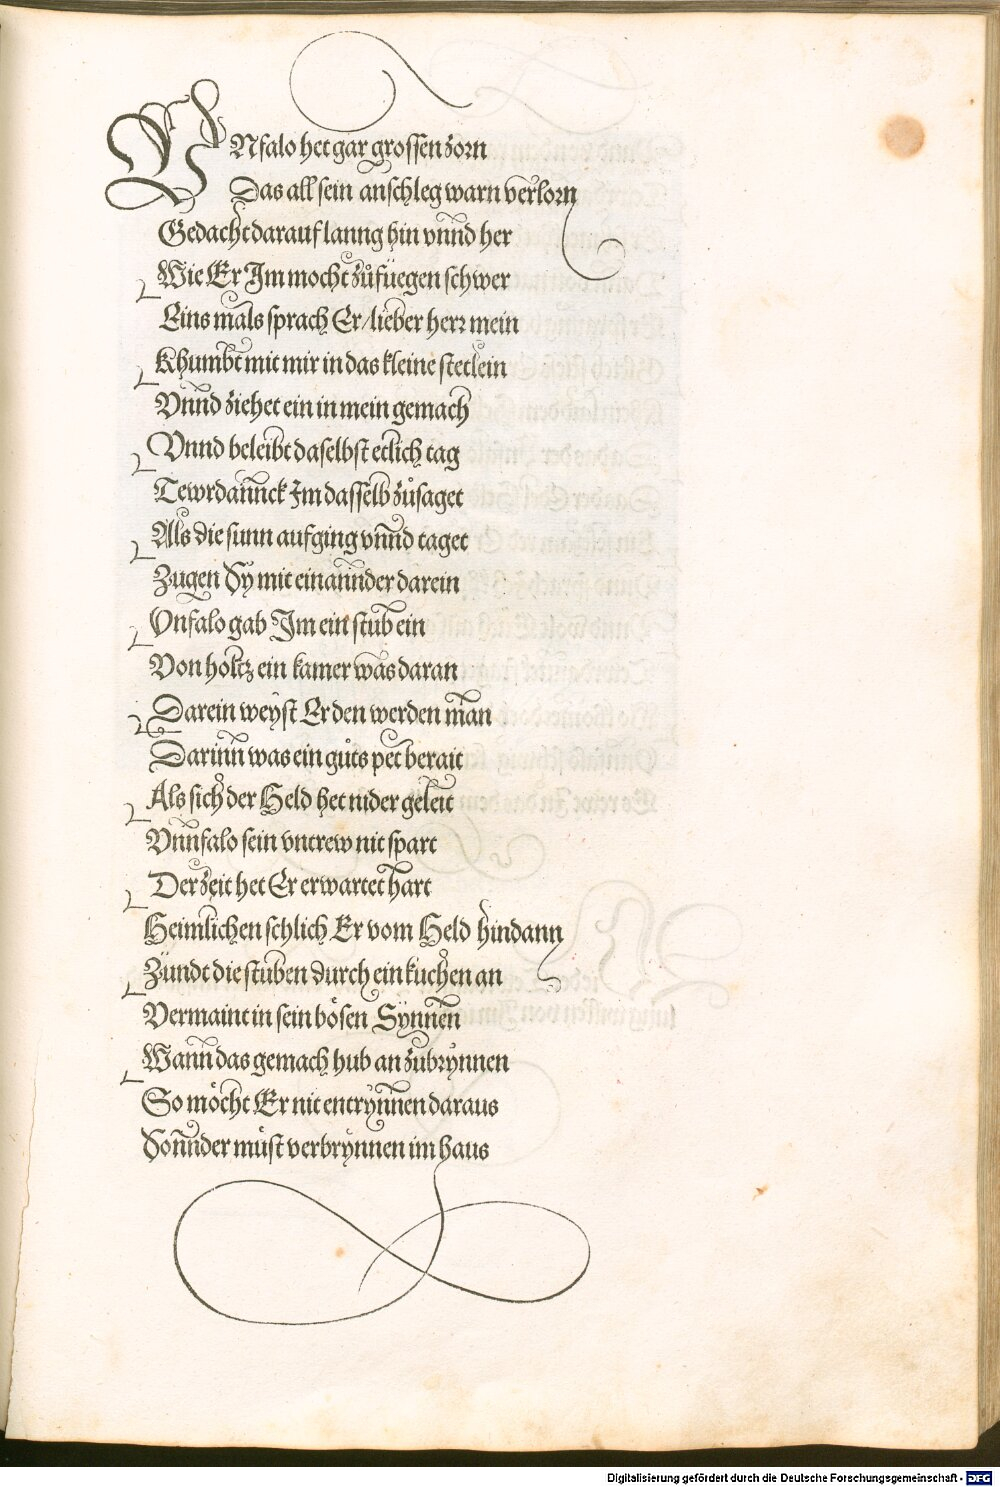 VNfalo het gar grossen zorn
Das all sein anschleg warn verlorn
Gedacht darauf lanng hin vnnd her
Wie Er Im mocht zůfüegen schwer
Eins mals sprach Er/lieber herr mein
Khumbt mit mir in das kleine stetlein
Vnnd ziehet ein in mein gemach
Vnnd beleibt daselbst etlich tag
Tewrdannck Im dasselb zůsaget
Als die sunn aufging vnnd taget
Zugen Sy mit einannder darein
Vnfalo gab Im ein stuben ein
Von holtz ein kamer was daran
Darein weyst Er den werden man
Darinn was ein gůts pet berait
Als sich der Held het nider geleit
Vnnfalo sein vntrew nit spart
Der zeit het Er erwartet hart
Heimlichen schlich Er vom Held hindann
Zündt die stuben durch ein kuchen an
Vermaint in sein bösen Synnen
Wann das gemach hub an zubrynnen
So möcht Er nit entrynnen daraus
Sonnder můst verbrynnen im haus
Digitalisierung gefördert durch die Deutsche Forschungsgemeinschaft - DFG